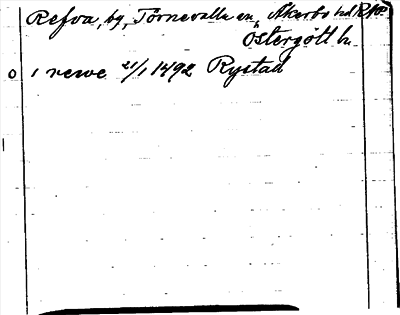 Refva, by, Törnevalla sn, Åkerbo hd
Östergötl.
o i rewe 21/1 1492 Rystad